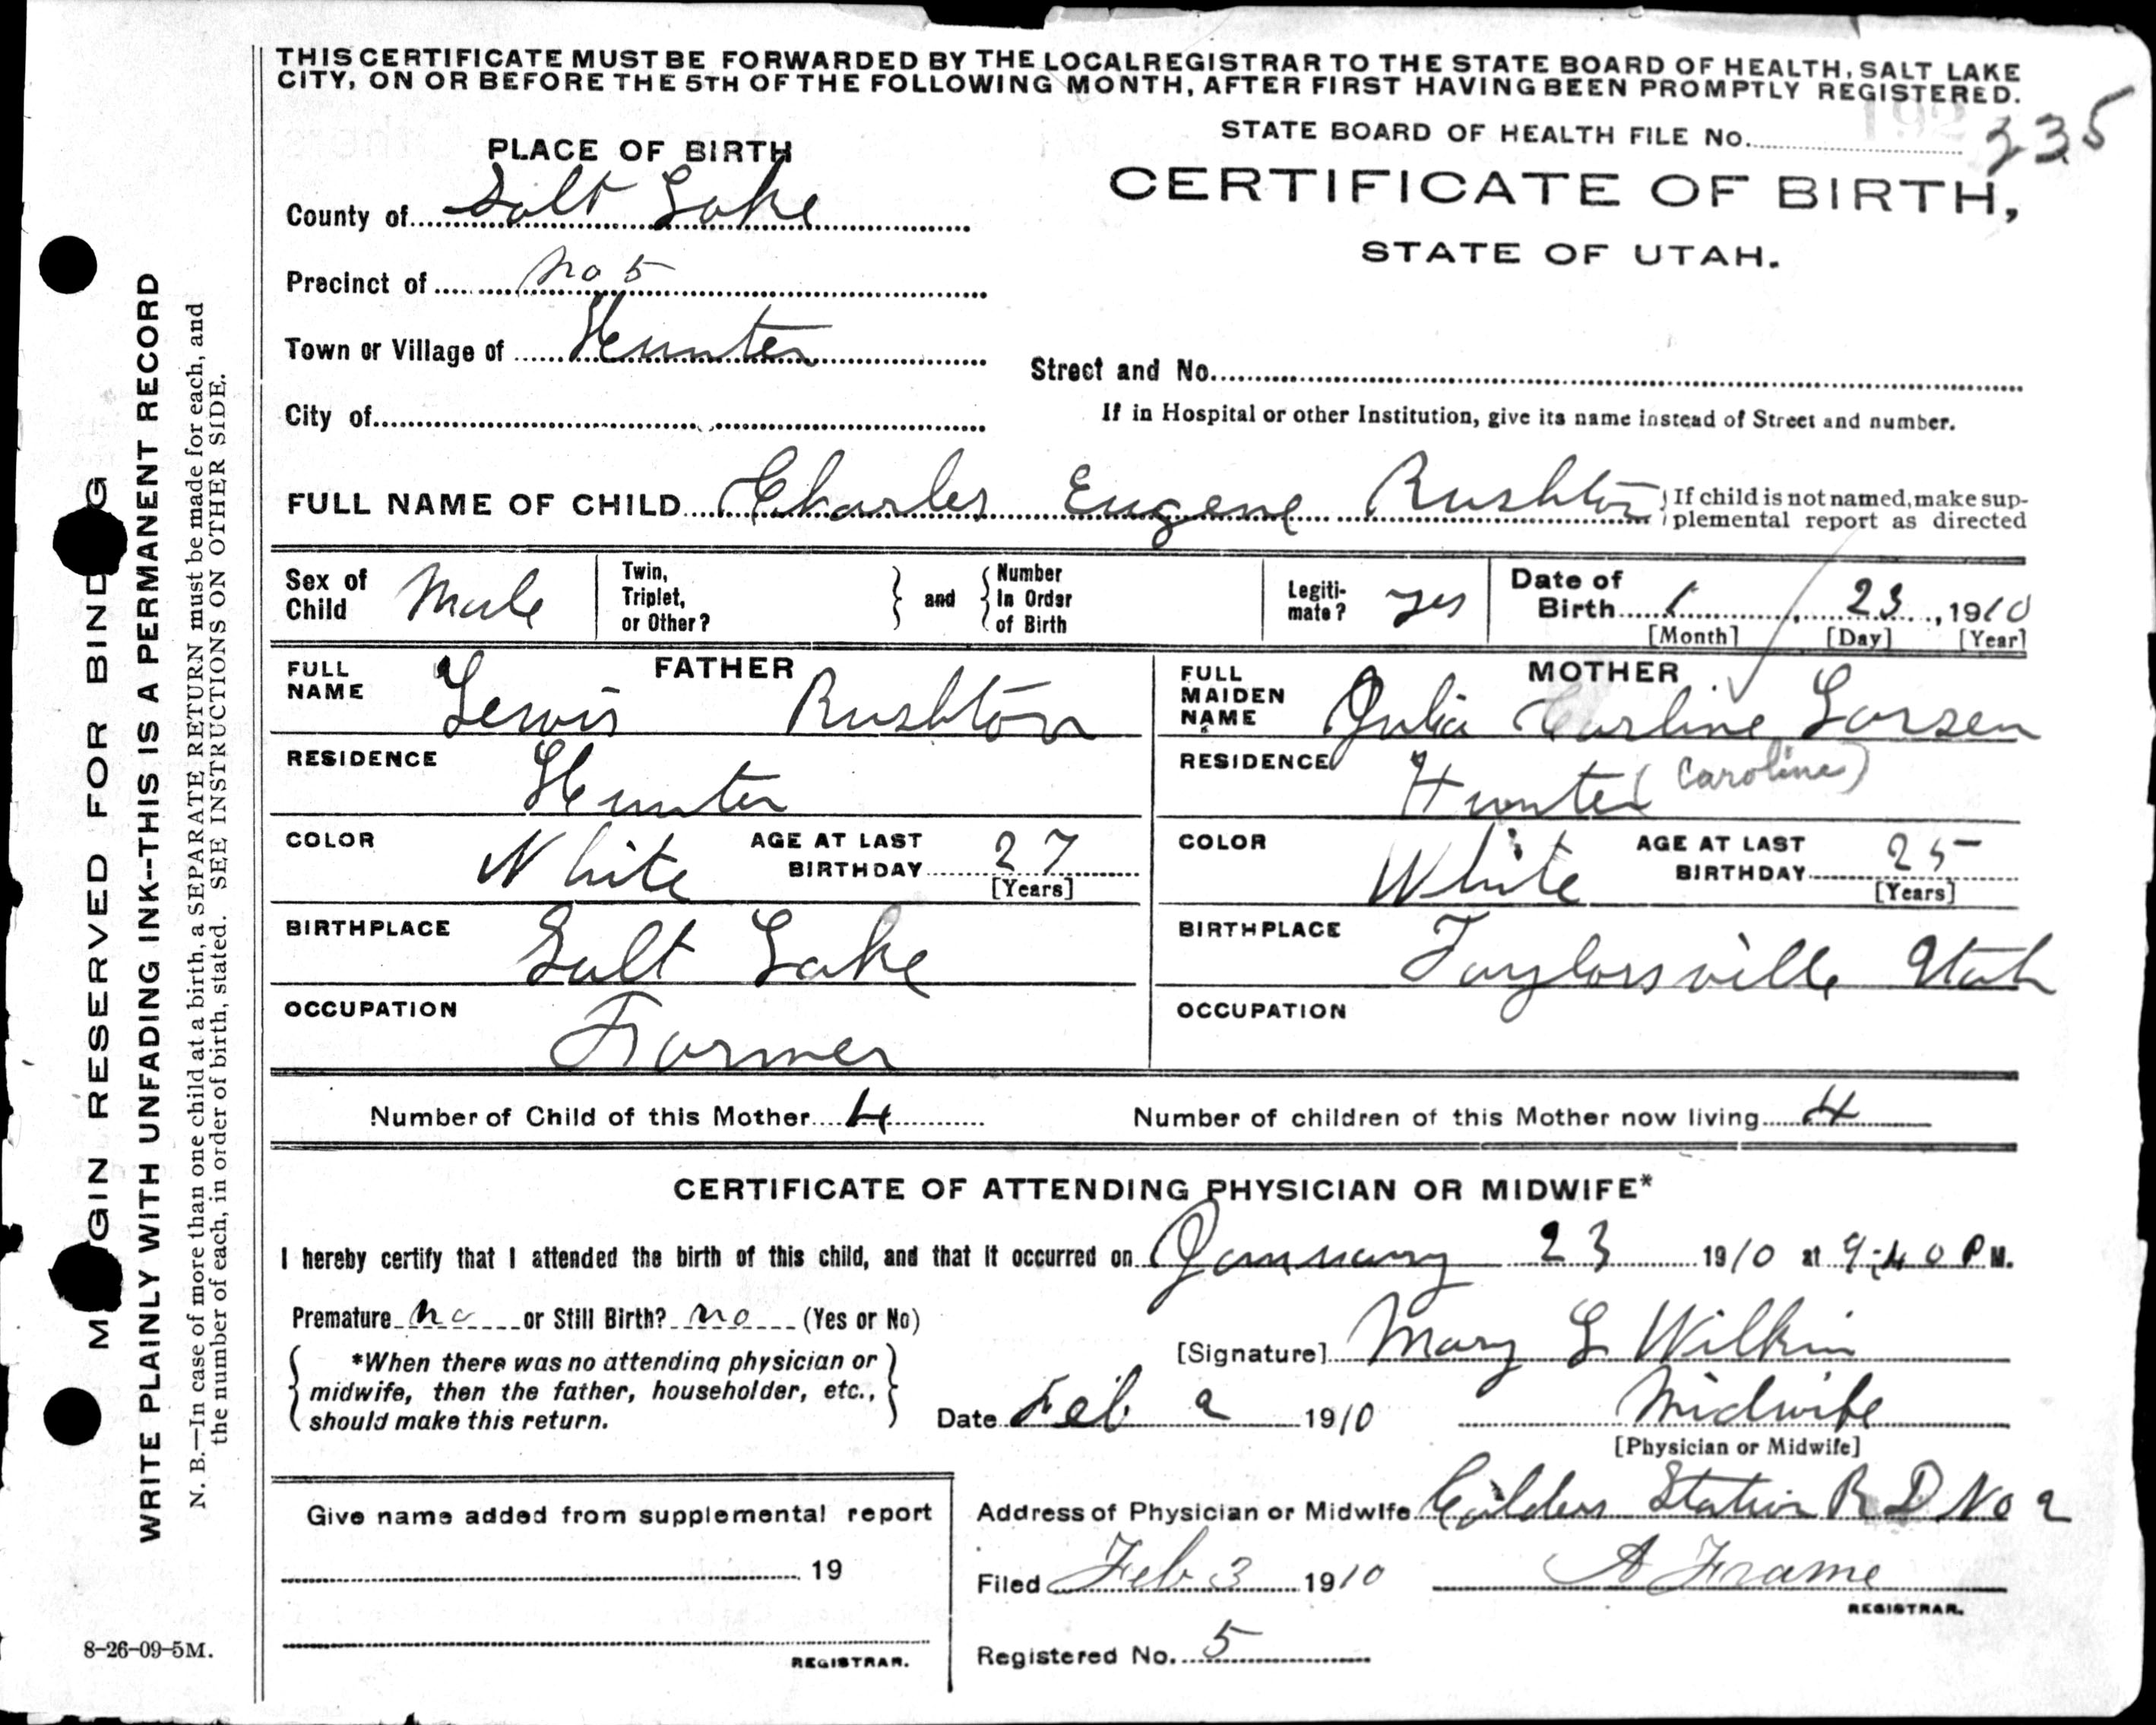 THIS CERTIFICATE MUST BE FORWARDED BY THE LOCAL REGISTRAR TO THE STATE BOARD OF HEALTH, SALT LAKE
CITY, ON OR BEFORE THE 5TH OF THE FOLLOWING MONTH, AFTER FIRST HAVING BEEN PROMPTLY REGISTERED.
STATE BOARD OF HEALTH FILE No. 192 235
PLACE OF BIRTH
CERTIFICATE OF BIRTH,
STATE OF UTAH.
County of Salt Lake
Precinct of No 5
Town or Village of Hunter
Street and No.
City of
If in Hospital or other Institution, give its name instead of Street and number.
FULL NAME OF CHILD Charles Eugene Rushton { If child is not named, make sup-
plemental report as directed
Sex of Child Male
Twin, Triplet, or Other? } and { Number In Order of Birth
Legiti-mate? yes
Date of Birth 1 23, 1910
[Month] [Day] [Year]
FATHER
FULL NAME Lewis Rushton
RESIDENCE Hunter
COLOR White AGE AT LAST BIRTHDAY 27
[Years]
BIRTHPLACE Salt Lake
OCCUPATION Farmer
MOTHER
FULL MAIDEN NAME Julia Carline Larsen
RESIDENCE Hunter (Caroline)
COLOR White AGE AT LAST BIRTHDAY 25
[Years]
BIRTHPLACE Taylorsville Utah
OCCUPATION
Number of Child of this Mother 4 Number of children of this Mother now living 4
CERTIFICATE OF ATTENDING PHYSICIAN OR MIDWIFE*
I hereby certify that I attended the birth of this child, and that it occurred on January 23 1910 at 9:40 P M.
Premature no or Still Birth? no (Yes or No)
[Signature] Mary L Wilkin
*When there was no attending physician or
midwife, then the father, householder, etc.,
should make this return.
Date Feb 2 1910 Midwife
[Physician or Midwife]
Give name added from supplemental report
19
REGISTRAR.
Address of Physician or Midwife Calders Station R D No 2
Filed Feb 3 1910 A Frame
REGISTRAR.
Registered No. 5
8-26-09-5M.
MARGIN RESERVED FOR BINDING
WRITE PLAINLY WITH UNFADING INK--THIS IS A PERMANENT RECORD
N. B.—In case of more than one child at a birth, a SEPARATE RETURN must be made for each, and
the number of each, in order of birth, stated. SEE INSTRUCTIONS ON OTHER SIDE.